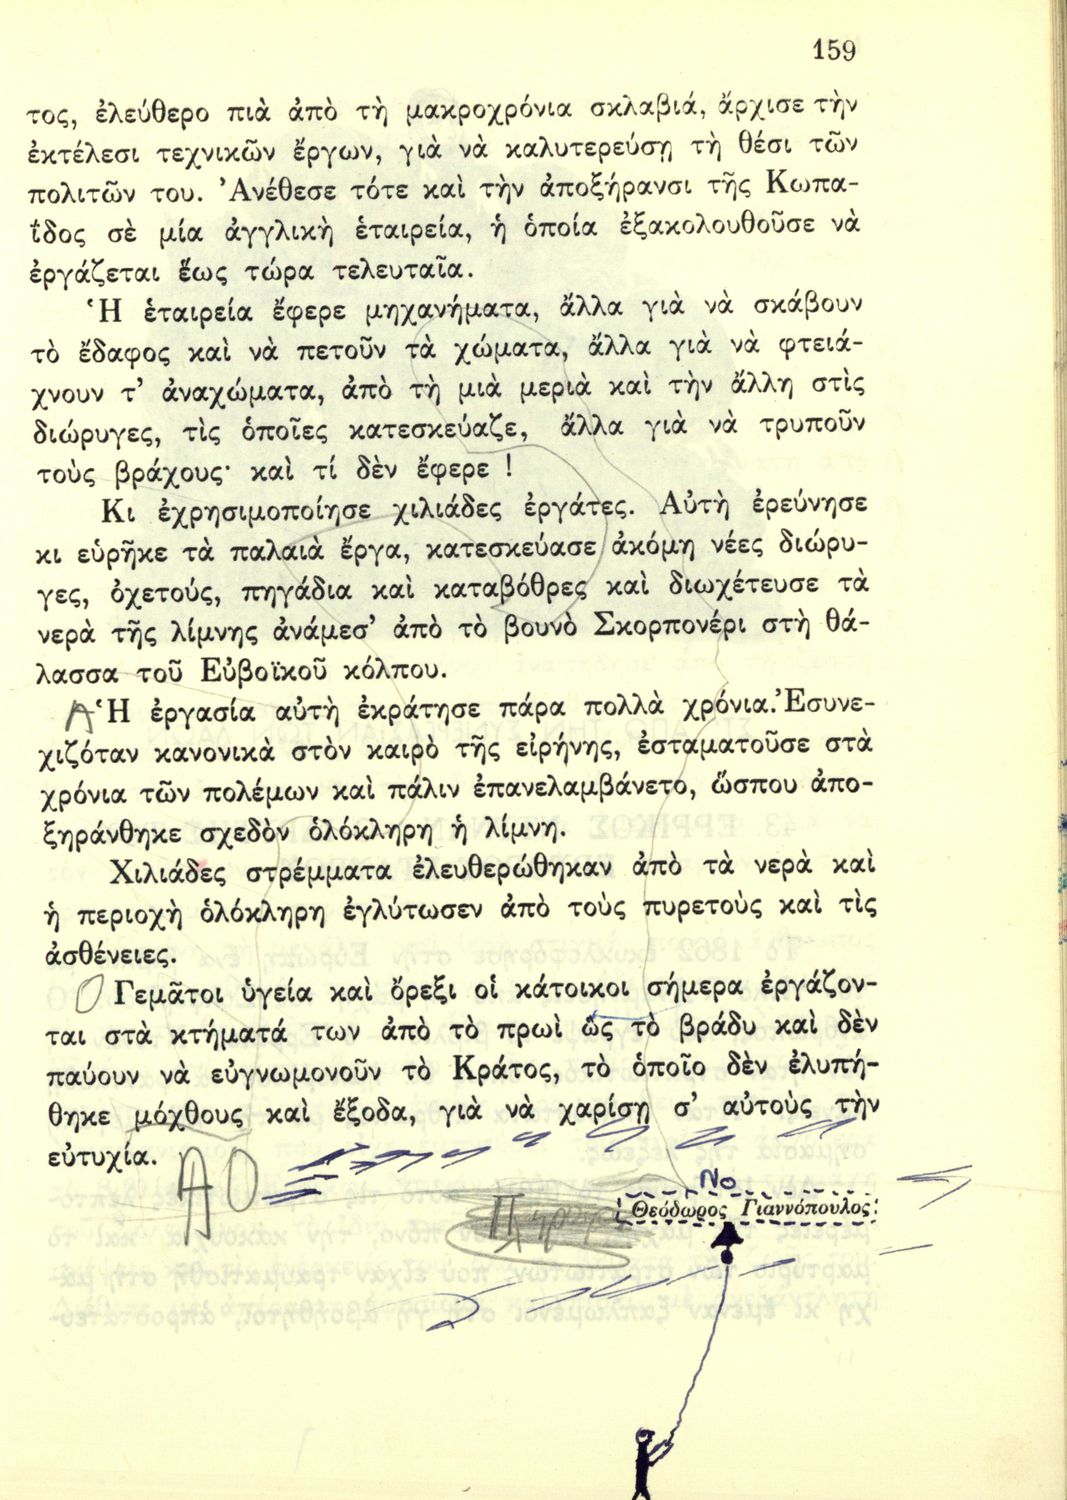 159
τος, ἐλεύθερο πιὰ ἀπὸ τὴ μακροχρόνια σκλαβιά, ἄρχισε τὴν
ἐκτέλεσι τεχνικῶν ἔργων, γιὰ νὰ καλυτερεύσῃ τὴ θέσι τῶν
πολιτῶν του. Ἀνέθεσε τότε καὶ τὴν ἀποξήρανσι τῆς Κωπα-
ΐδος σὲ μία ἀγγλικὴ ἑταιρεία, ἡ ὁποία ἐξακολουθοῦσε νὰ
ἐργάζεται ἕως τώρα τελευταῖα.
Ἡ ἑταιρεία ἔφερε μηχανήματα, ἄλλα γιὰ νὰ σκάβουν
τὸ ἔδαφος καὶ νὰ πετοῦν τὰ χώματα, ἄλλα γιὰ νὰ φτειά-
χνουν τ' ἀναχώματα, ἀπὸ τὴ μιὰ μεριὰ καὶ τὴν ἄλλη στὶς
διώρυγες, τὶς ὁποῖες κατεσκεύαζε, ἄλλα γιὰ νὰ τρυποῦν
τοὺς βράχους· καὶ τί δὲν ἔφερε !
Κι ἐχρησιμοποίησε χιλιάδες ἐργάτες. Αὐτὴ ἐρεύνησε
κι εὑρῆκε τὰ παλαιὰ ἔργα, κατεσκεύασε ἀκόμη νέες διώρυ-
γες, ὀχετούς, πηγάδια καὶ καταβόθρες καὶ διωχέτευσε τὰ
νερὰ τῆς λίμνης ἀνάμεσ' ἀπὸ τὸ βουνὸ Σκορπονέρι στὴ θά-
λασσα τοῦ Εὐβοϊκοῦ κόλπου.
Α Ἡ ἐργασία αὐτὴ ἐκράτησε πάρα πολλὰ χρόνια. Ἐσυνε-
χιζόταν κανονικὰ στὸν καιρὸ τῆς εἰρήνης, ἐσταματοῦσε στὰ
χρόνια τῶν πολέμων καὶ πάλιν ἐπανελαμβάνετο, ὥσπου ἀπο-
ξηράνθηκε σχεδὸν ὁλόκληρη ἡ λίμνη.
Χιλιάδες στρέμματα ἐλευθερώθηκαν ἀπὸ τὰ νερὰ καὶ
ἡ περιοχὴ ὁλόκληρη ἐγλύτωσεν ἀπὸ τοὺς πυρετοὺς καὶ τὶς
ἀσθένειες.
Ο Γεμᾶτοι ὑγεία καὶ ὄρεξι οἱ κάτοικοι σήμερα ἐργάζον-
ται στὰ κτήματά των ἀπὸ τὸ πρωὶ ὣς τὸ βράδυ καὶ δὲν
παύουν νὰ εὐγνωμονοῦν τὸ Κράτος, τὸ ὁποῖο δὲν ἐλυπή-
θηκε μόχθους καὶ ἔξοδα, γιὰ νὰ χαρίσῃ σ' αὐτοὺς τὴν
εὐτυχία.
ΑΟ
Νο
Θεόδωρος Γιαννόπουλος